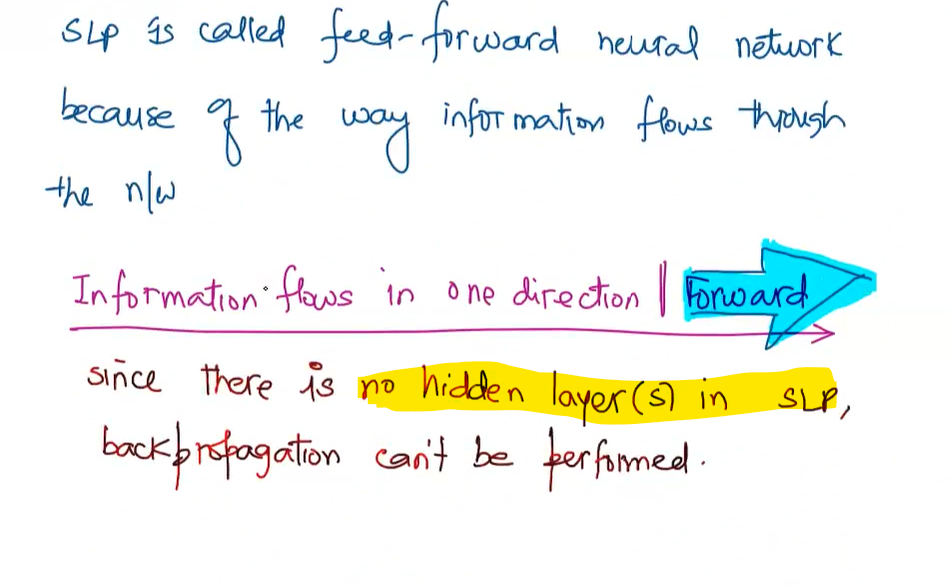 SLP is called feed-forward neural network
because of the way information flows through
the n/w
Information flows in one direction | Forward
since there is no hidden layer(s) in SLP,
backpropagation can't be performed.